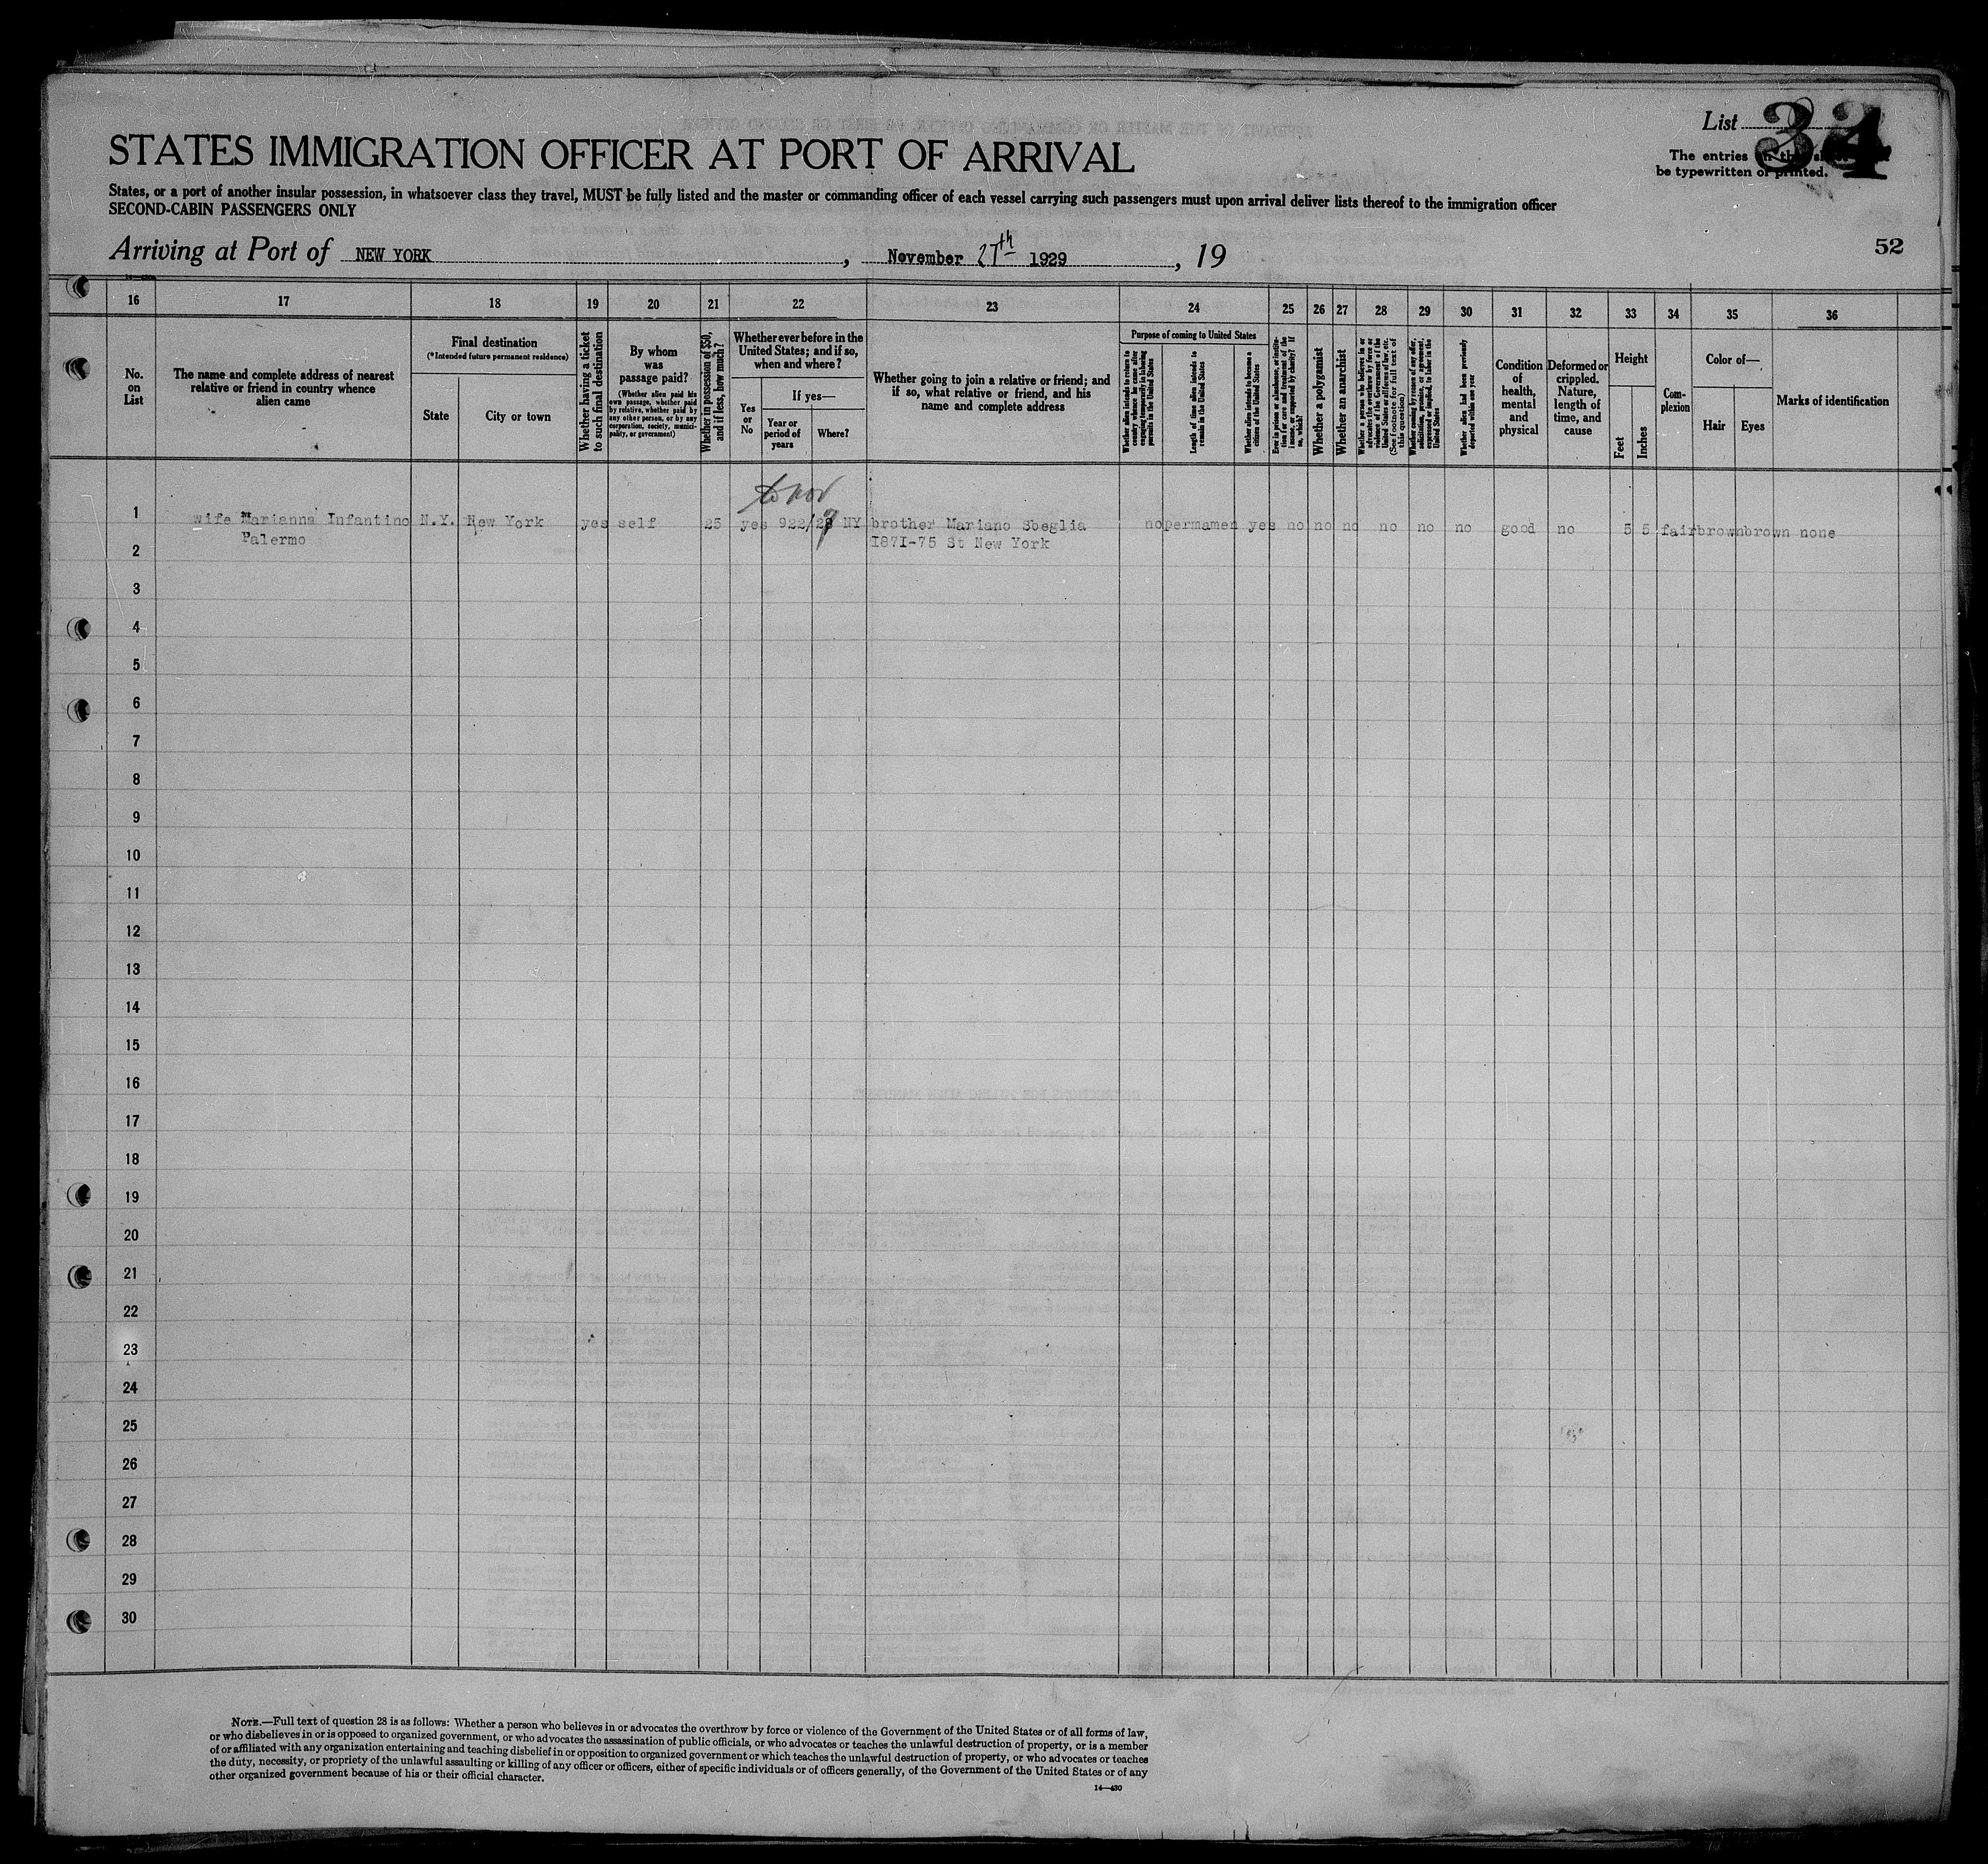 List 34
STATES IMMIGRATION OFFICER AT PORT OF ARRIVAL
The entries on this sheet must be typewritten or printed.
States, or a port of another insular possession, in whatsoever class they travel, MUST be fully listed and the master or commanding officer of each vessel carrying such passengers must upon arrival deliver lists thereof to the immigration officer
SECOND-CABIN PASSENGERS ONLY
Arriving at Port of NEW YORK, November 27th 1929, 19
52
16 17 18 19 20 21 22 23 24 25 26 27 28 29 30 31 32 33 34 35 36
No. on List
The name and complete address of nearest relative or friend in country whence alien came
Final destination
(*Intended future permanent residence)
State
City or town
Whether having a ticket to such final destination
By whom was passage paid?
(Whether alien paid his own passage, whether paid by relative, whether paid by any other person, or by any corporation, society, municipality, or government)
Whether in possession of $50, and if less, how much?
Whether ever before in the United States; and if so, when and where?
Yes or No
If yes—
Year or period of years
Where?
Whether going to join a relative or friend; and if so, what relative or friend, and his name and complete address
Purpose of coming to United States
Whether alien intends to return to country whence he came after engaging temporarily in laboring pursuits in the United States
Length of time alien intends to remain in the United States
Whether alien intends to become a citizen of the United States
Ever in prison or almshouse, or institution for care and treatment of the insane, or supported by charity? If so, which?
Whether a polygamist
Whether an anarchist
Whether a person who believes in or advocates the overthrow by force or violence of the Government of the United States or all forms of law, etc. (See footnote for full text of this question)
Whether coming by reason of any offer, solicitation, promise, or agreement, expressed or implied, to labor in the United States
Whether alien had been previously deported within one year
Condition of health, mental and physical
Deformed or crippled. Nature, length of time, and cause
Height
Feet
Inches
Complexion
Color of—
Hair
Eyes
Marks of identification
to nov
1 wife Marianna Infantino N.Y. New York yes self 25 yes 922/29 NY brother Mariano Sbeglia no permamen yes no no no no no no good no 5 5 fair brown brown none
2 Palermo I87I-75 St New York
3
4
5
6
7
8
9
10
11
12
13
14
15
16
17
18
19
20
21
22
23
24
25
26
27
28
29
30
NOTE.—Full text of question 28 is as follows: Whether a person who believes in or advocates the overthrow by force or violence of the Government of the United States or of all forms of law,
or who disbelieves in or is opposed to organized government, or who advocates the assassination of public officials, or who advocates or teaches the unlawful destruction of property, or is a member
of or affiliated with any organization entertaining and teaching disbelief in or opposition to organized government or which teaches the unlawful destruction of property, or who advocates or teaches
the duty, necessity, or propriety of the unlawful assaulting or killing of any officer or officers, either of specific individuals or of officers generally, of the Government of the United States or of any
other organized government because of his or their official character.
14—430